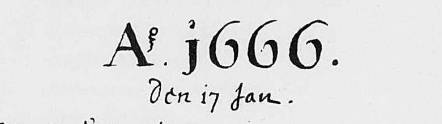 Aº. j666.
den 17 Jan.